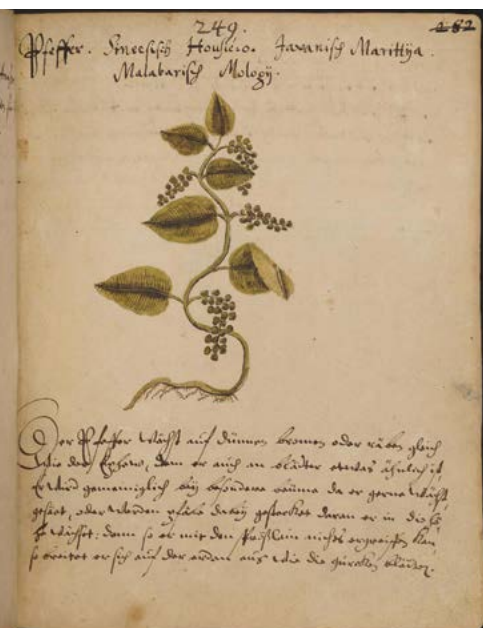 249.
282
Pfeffer. Sineesisch Housiëio. Javanisch Marittÿa.
Malabarisch Mologÿ.
Der Pfeffer wächst auf dünnen oder räben gleich
wie der Ephew, dem er auch an blädter etwas ähnlich ist
Er wird gemeiniglich beÿ besondere bäume da er gerne wächst
gesäet, oder werden pfäle darbeÿ gestecket daran er in die
he wächset; denn so er mit den nichts ergreiffen kan,
so breitet er sich auf der erden aus wie die gurcken